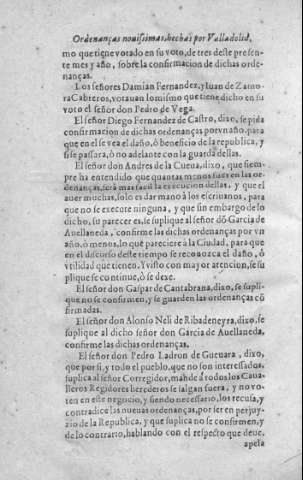 Ordenanças nouissimas, hechas por Valladolid,
mo que tiene votado en su voto, de tres deste presen-
te mes y año, sobre la confirmacion de dichas orde-
nanças.
Los señores Damian Fernandez, y Iuan de Zamo-
ra Cabreros, votauan lo mismo que tiene dicho en su
voto el señor don Pedro de Vega.
El señor Diego Fernandez de Castro, dixo, se pida
confirmacion de dichas ordenanças por vn año, para
que en el se vea el daño, ò beneficio de la republica, y
si se passara, ò no adelante con la guarda dellas.
El señor don Andres de la Cueua, dixo, que siem-
pre ha entendido que quantas menos sean las or-
denanças, serà mas facil la execucion dellas, y que el
auer muchas, solo es dar mano à los escriuanos, para
que no se execute ninguna, y que sin embargo de lo
dicho, su parecer es, se suplique al señor dõ Garcia de
Auellaneda, confirme las dichas ordenanças por vn
año, ò menos, lo que pareciere à la Ciudad, para que
en el discurso deste tiempo se reconozca el daño, ò
vtilidad que tienen. Y visto con mayor atencion, se su
plique se continue, ò se dexe.
El señor don Gaspar de Cantabrana, dixo, se supli-
que no se confirmen, y se guarden las ordenanças cõ
firmadas.
El señor don Alonso Neli de Ribadeneyra, dixo, se
suplique al dicho señor don Garcia de Auellaneda,
confirme las dichas ordenanças.
El señor don Pedro Ladron de Gueuara, dixo,
que por si, y todo el pueblo, que no son interessados,
suplica al señor Corregidor, mãde à todos los Caua-
lleros Regidores herederos se salgan fuera, y no vo-
ten en este negocio, y siendo necessario, los recusa, y
contradice las nueuas ordenanças, por ser en perjuy-
zio de la Republica, y que suplica no se confirmen, y
de lo contrario, hablando con el respecto que deue,
apela